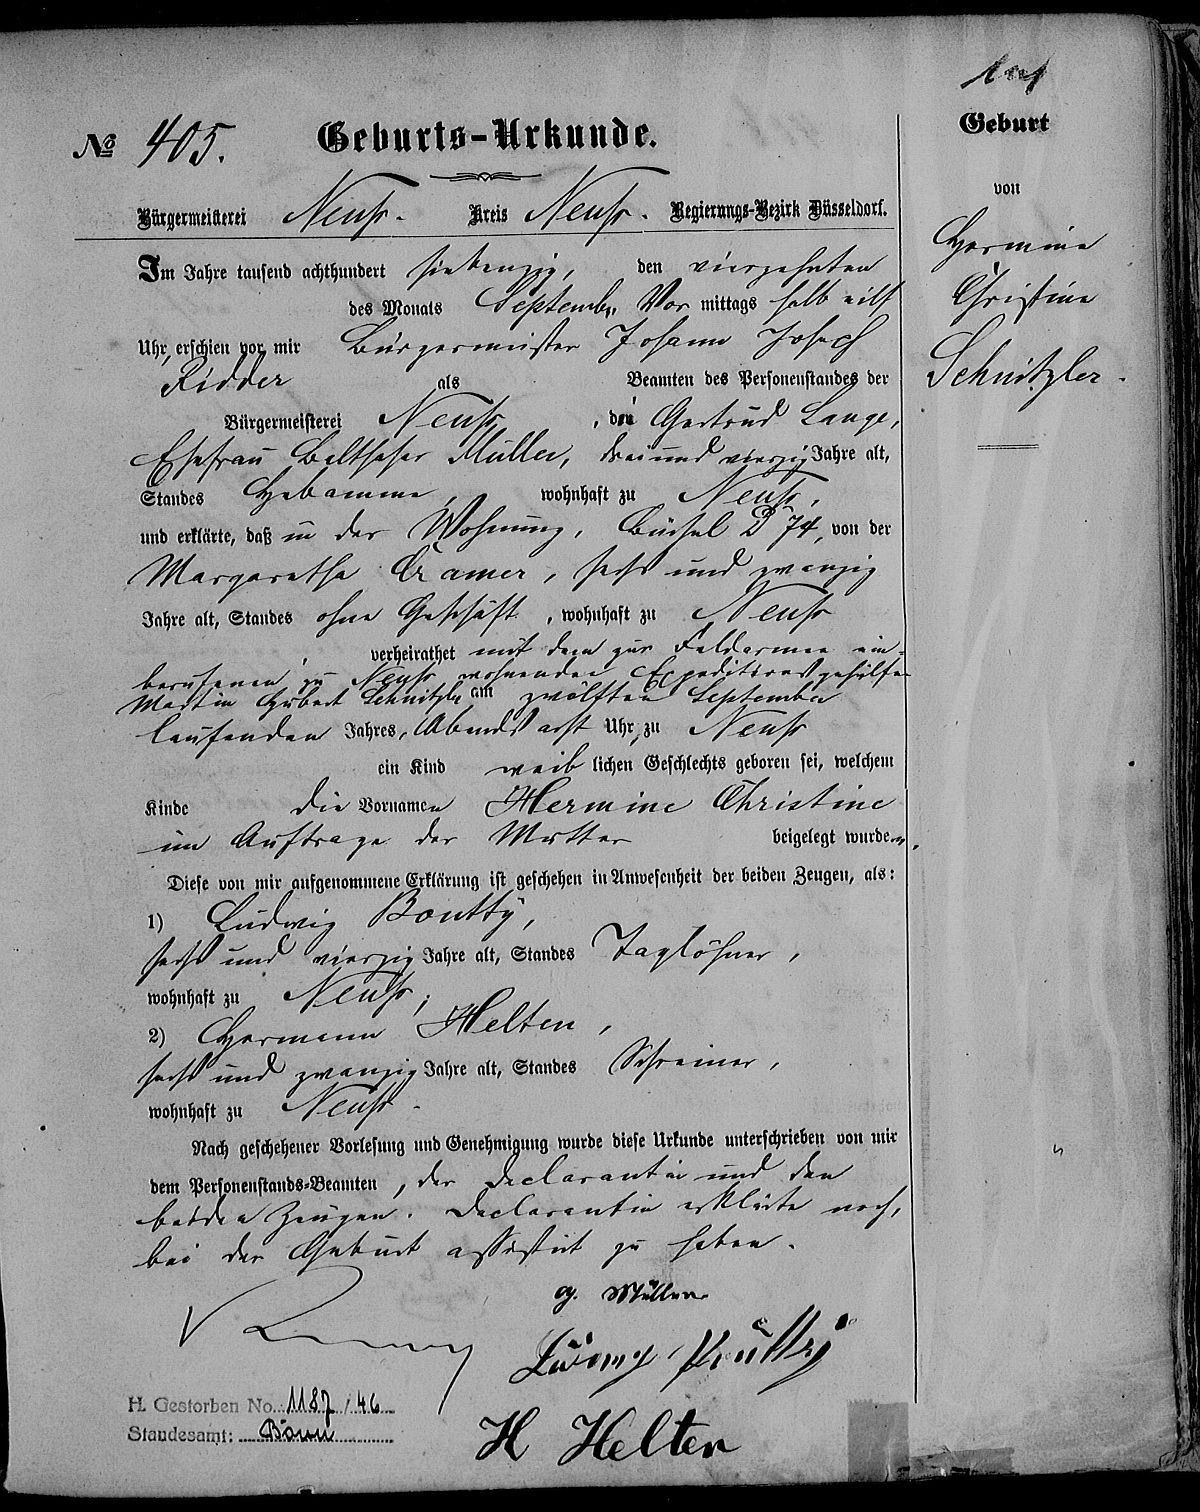 № 405.
Geburts-Urkunde.
Bürgermeisterei Neuss. Kreis Neuss. Regierungs-Bezirk Düsseldorf.
Im Jahre tausend achthundert siebenzig, den vierzehnten
des Monats September Vor mittags halb eilf
Uhr, erschien vor mir Bürgermeister Johann Joseph
Ridder als Beamten des Personenstandes der
Bürgermeisterei Neuss, die Gertrud Lange,
Ehefrau Balthasar Müller, drei und vierzig Jahre alt,
Standes Hebamme, wohnhaft zu Neuss,
und erklärte, daß in der Wohnung, Büchel D 74, von der
Margaretha Cramer, sechs und zwanzig
Jahre alt, Standes ohne Geschäft, wohnhaft zu Neuss
verheirathet mit dem zur Feldarmee ein-
berufenen zu Neuss wohnenden Expeditionsgehülfen
Martin Hubert Schnitzler am zwölften September
laufenden Jahres, Abends acht Uhr, zu Neuss
ein Kind weib lichen Geschlechts geboren sei, welchem
Kinde die Vornamen Hermine Christine
im Auftrage der Mutter beigelegt wurden.
Diese von mir aufgenommene Erklärung ist geschehen in Anwesenheit der beiden Zeugen, als:
1) Ludwig Boutty,
sechs und vierzig Jahre alt, Standes Taglöhner,
wohnhaft zu Neuss;
2) Hermann Helten,
sechs und zwanzig Jahre alt, Standes Schreiner,
wohnhaft zu Neuss.
Nach geschehener Vorlesung und Genehmigung wurde diese Urkunde unterschrieben von mir
dem Personenstands-Beamten, der Declarantin und den
beiden Zeugen. Declarantin erklärte noch,
bei der Geburt assistirt zu haben.
g. Müller
H Helten
H. Gestorben No. 1187/46
Standesamt: Bonn
Geburt
von
Hermine
Christine
Schnitzler.